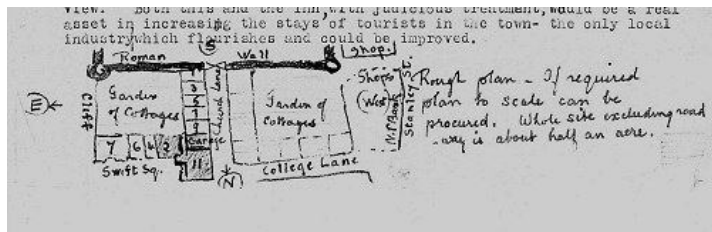 view. Both this and the Inn, with judicious treatment, would be a real
asset in increasing the stays of tourists in the town- the only local
industrywhich flourishes and could be improved.
S
Roman Wall
Shop.
E
Cliff
Garden
of Cottages
1
3
5
7
9
Garage
11
Church Lane
Garden of
Cottages
Shops
(West)
Stanley St.
Rough plan - If required
plan to scale can be
procured. Whole site excluding road
-way is about half an acre.
7 6 4 2
Swift Sq.
N
College Lane